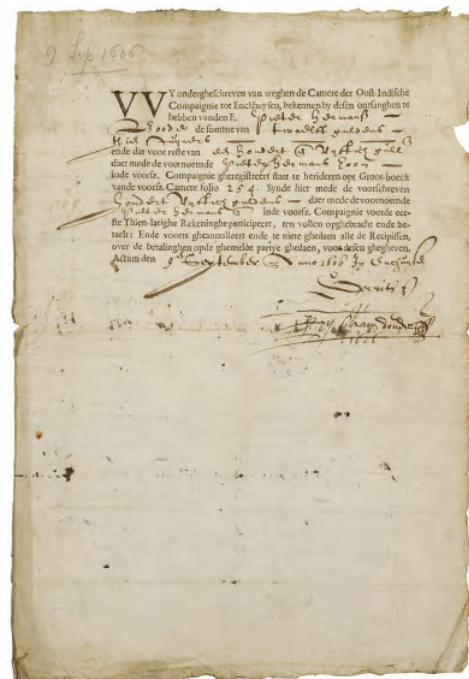 9 Sep 1606
WY ondergheschreven van weghen de Camere der Oost-Indische
Compaignie tot Enckhuysen, bekennen by desen ontfanghen te
hebben vanden E. Pieter Hermansz
de somme van twaelf guldens
ende dat voor reste van een hondert @ vyftich
daer mede de voornoemde Pieter Hermans zoon
inde voorsz. Compaignie gheregistreert staet te herideren opt Groot-boeck
vande voorsz. Camere folio 254. Synde hier mede de voorschreven
hondert vyftich guldens daer mede de voornoemde
Pieter Hermans inde voorsz. Compaignie voorde eer-
ste Thien-Iarighe Rekeninghe participeert, ten vollen opghebracht ende be-
taelt: Ende voorts gheannulleert ende te niete ghedaen alle de Recipissen,
over de betalinghen opde ghemelde partye ghedaen, voor desen ghegheven.
Actum den 9 September Anno 1606